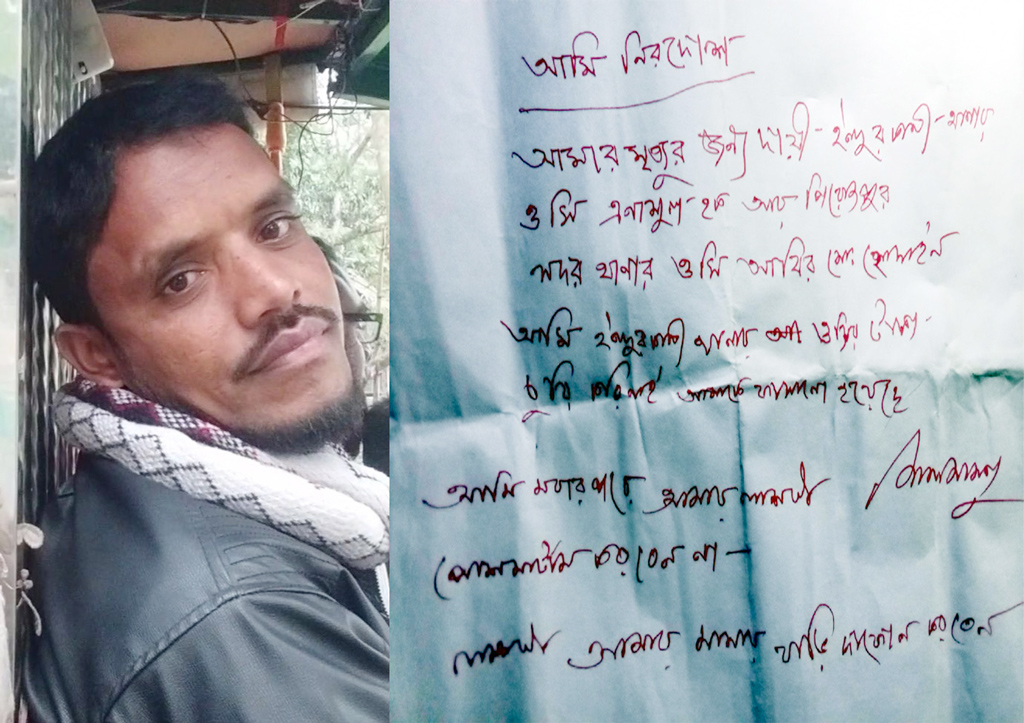 আমি নিরদোশ
আমার মৃত্যুর জন্য দায়ী - ইন্দুরকানী - থানার
ওসি এনামুল হক আর পিরোজপুর
সদর থানার ওসি আবির মো হোসাইন
আমি ইন্দুরকানী থানার ওসির টাকা -
চুরি করিনাই আমাকে ফাসানো হয়েছে
আমি মরার পরে আমার লাশটা
পোসমাটাম করবেন না -
লাশটা আমার মামার বাড়ি দাফোন করবেন